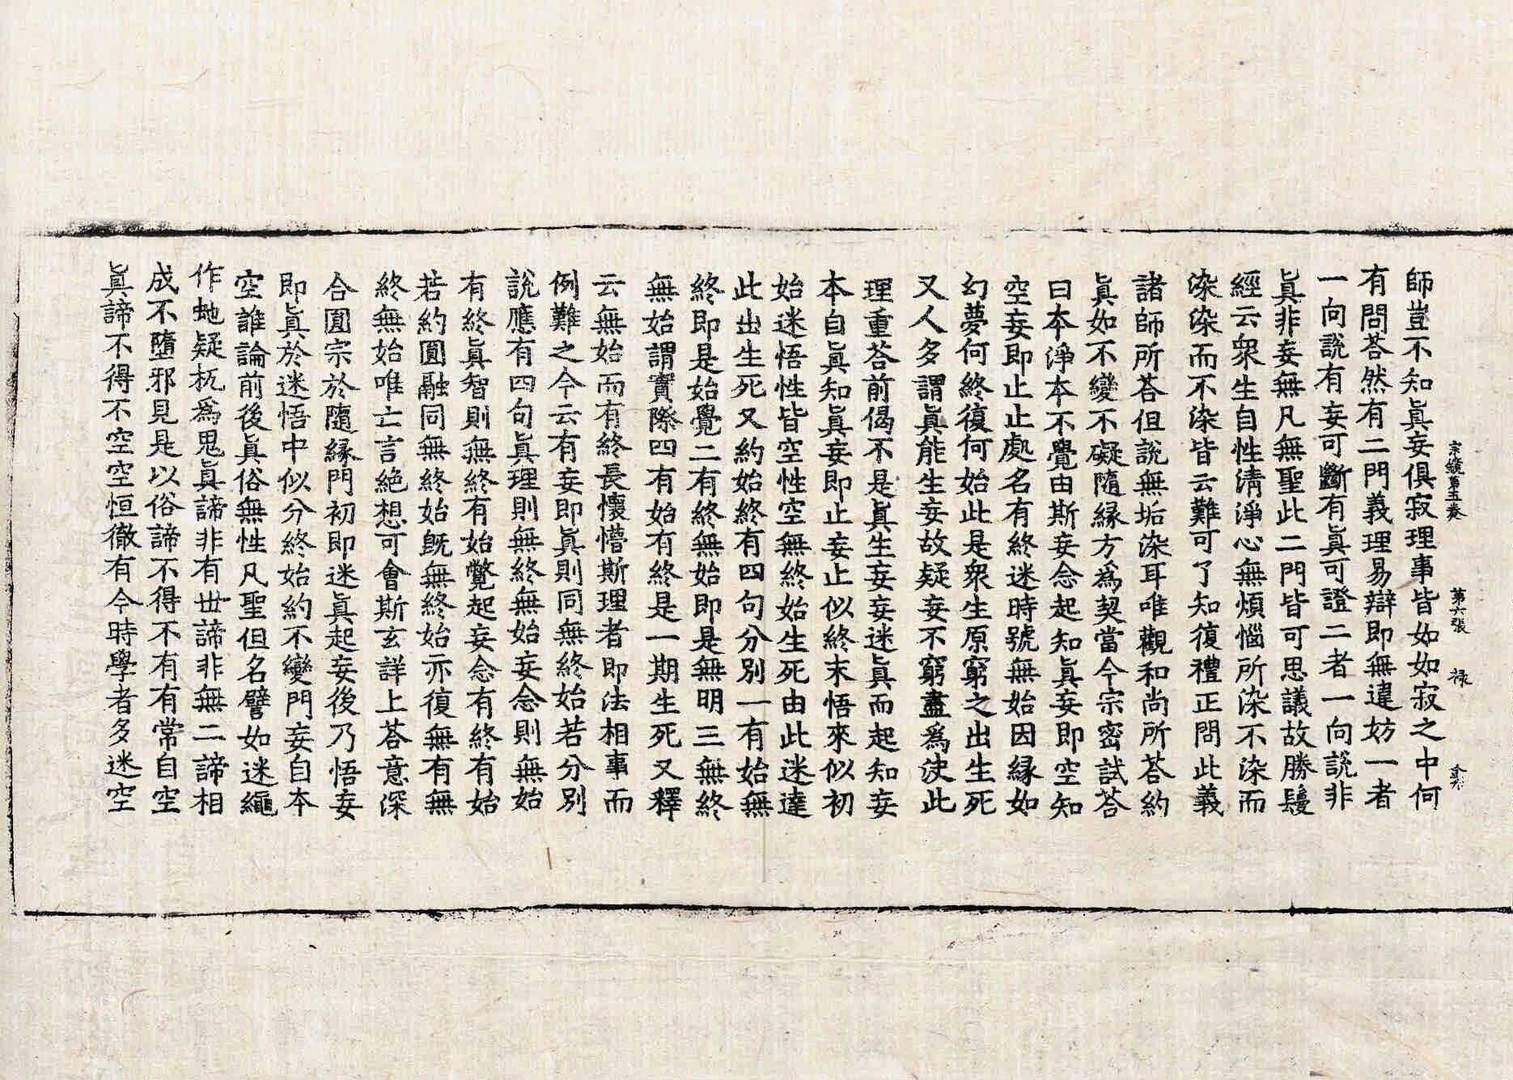 宗鏡第五卷 第六張 祿
師豈不知真妄俱寂理事皆如如寂之中何
有問荅然有二門義理易辯即無違妨一者
一向說有妄可斷有真可證二者一向說非
真非妄無凡無聖此二門皆可思議故勝鬘
經云衆生自性清淨心無煩惱所染不染而
染染而不染皆云難可了知復禮正問此義
諸師所荅但說無垢染耳唯觀和尚所荅約
真如不變不礙隨緣方為契當今宗密試荅
曰本淨本不覺由斯妄念起知真妄即空知
空妄即止止處名有終迷時號無始因緣如
幻夢何終復何始此是衆生原窮之出生死
又人多謂真能生妄故疑妄不窮盡為决此
理重荅前偈不是真生妄妄迷真而起知妄
本自真知真妄即止妄止似終末悟來似初
始迷悟性皆空性空無終始生死由此迷達
此出生死又約始終有四句分別一有始無
終即是始覺二有終無始即是無明三無終
無始謂實際四有始有終是一期生死又釋
云無始而有終長懷懵斯理者即法相事而
例難之今云有妄即真則同無終始若分別
說應有四句真理則無終無始妄念則無始
有終真智則無終有始瞥起妄念有終有始
若約圓融同無終始旣無終始亦復無有無
終無始唯亡言絕想可會斯玄詳上荅意深
合圓宗於隨緣門初即迷真起妄後乃悟妄
即真於迷悟中似分終始約不變門妄自本
空誰論前後真俗無性凡聖但名譬如迷繩
作虵疑杌為鬼真諦非有世諦非無二諦相
成不墮邪見是以俗諦不得不有有常自空
真諦不得不空空恒徹有今時學者多迷空